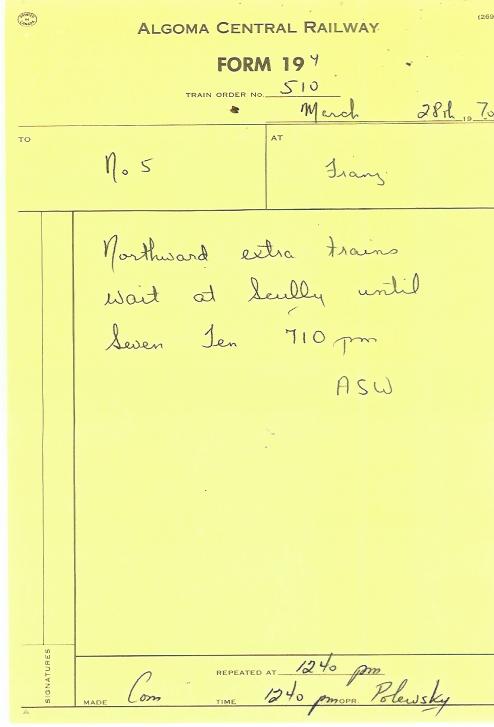 (269
ALGOMA CENTRAL RAILWAY
FORM 19 Y
TRAIN ORDER NO. 510
March 28th 1970
TO No 5
AT Franz
Northward extra trains
wait at Scully until
Seven Ten 710 pm
ASW
SIGNATURES
REPEATED AT 1240 pm
MADE Com TIME 1240 pm OPR. Polewsky